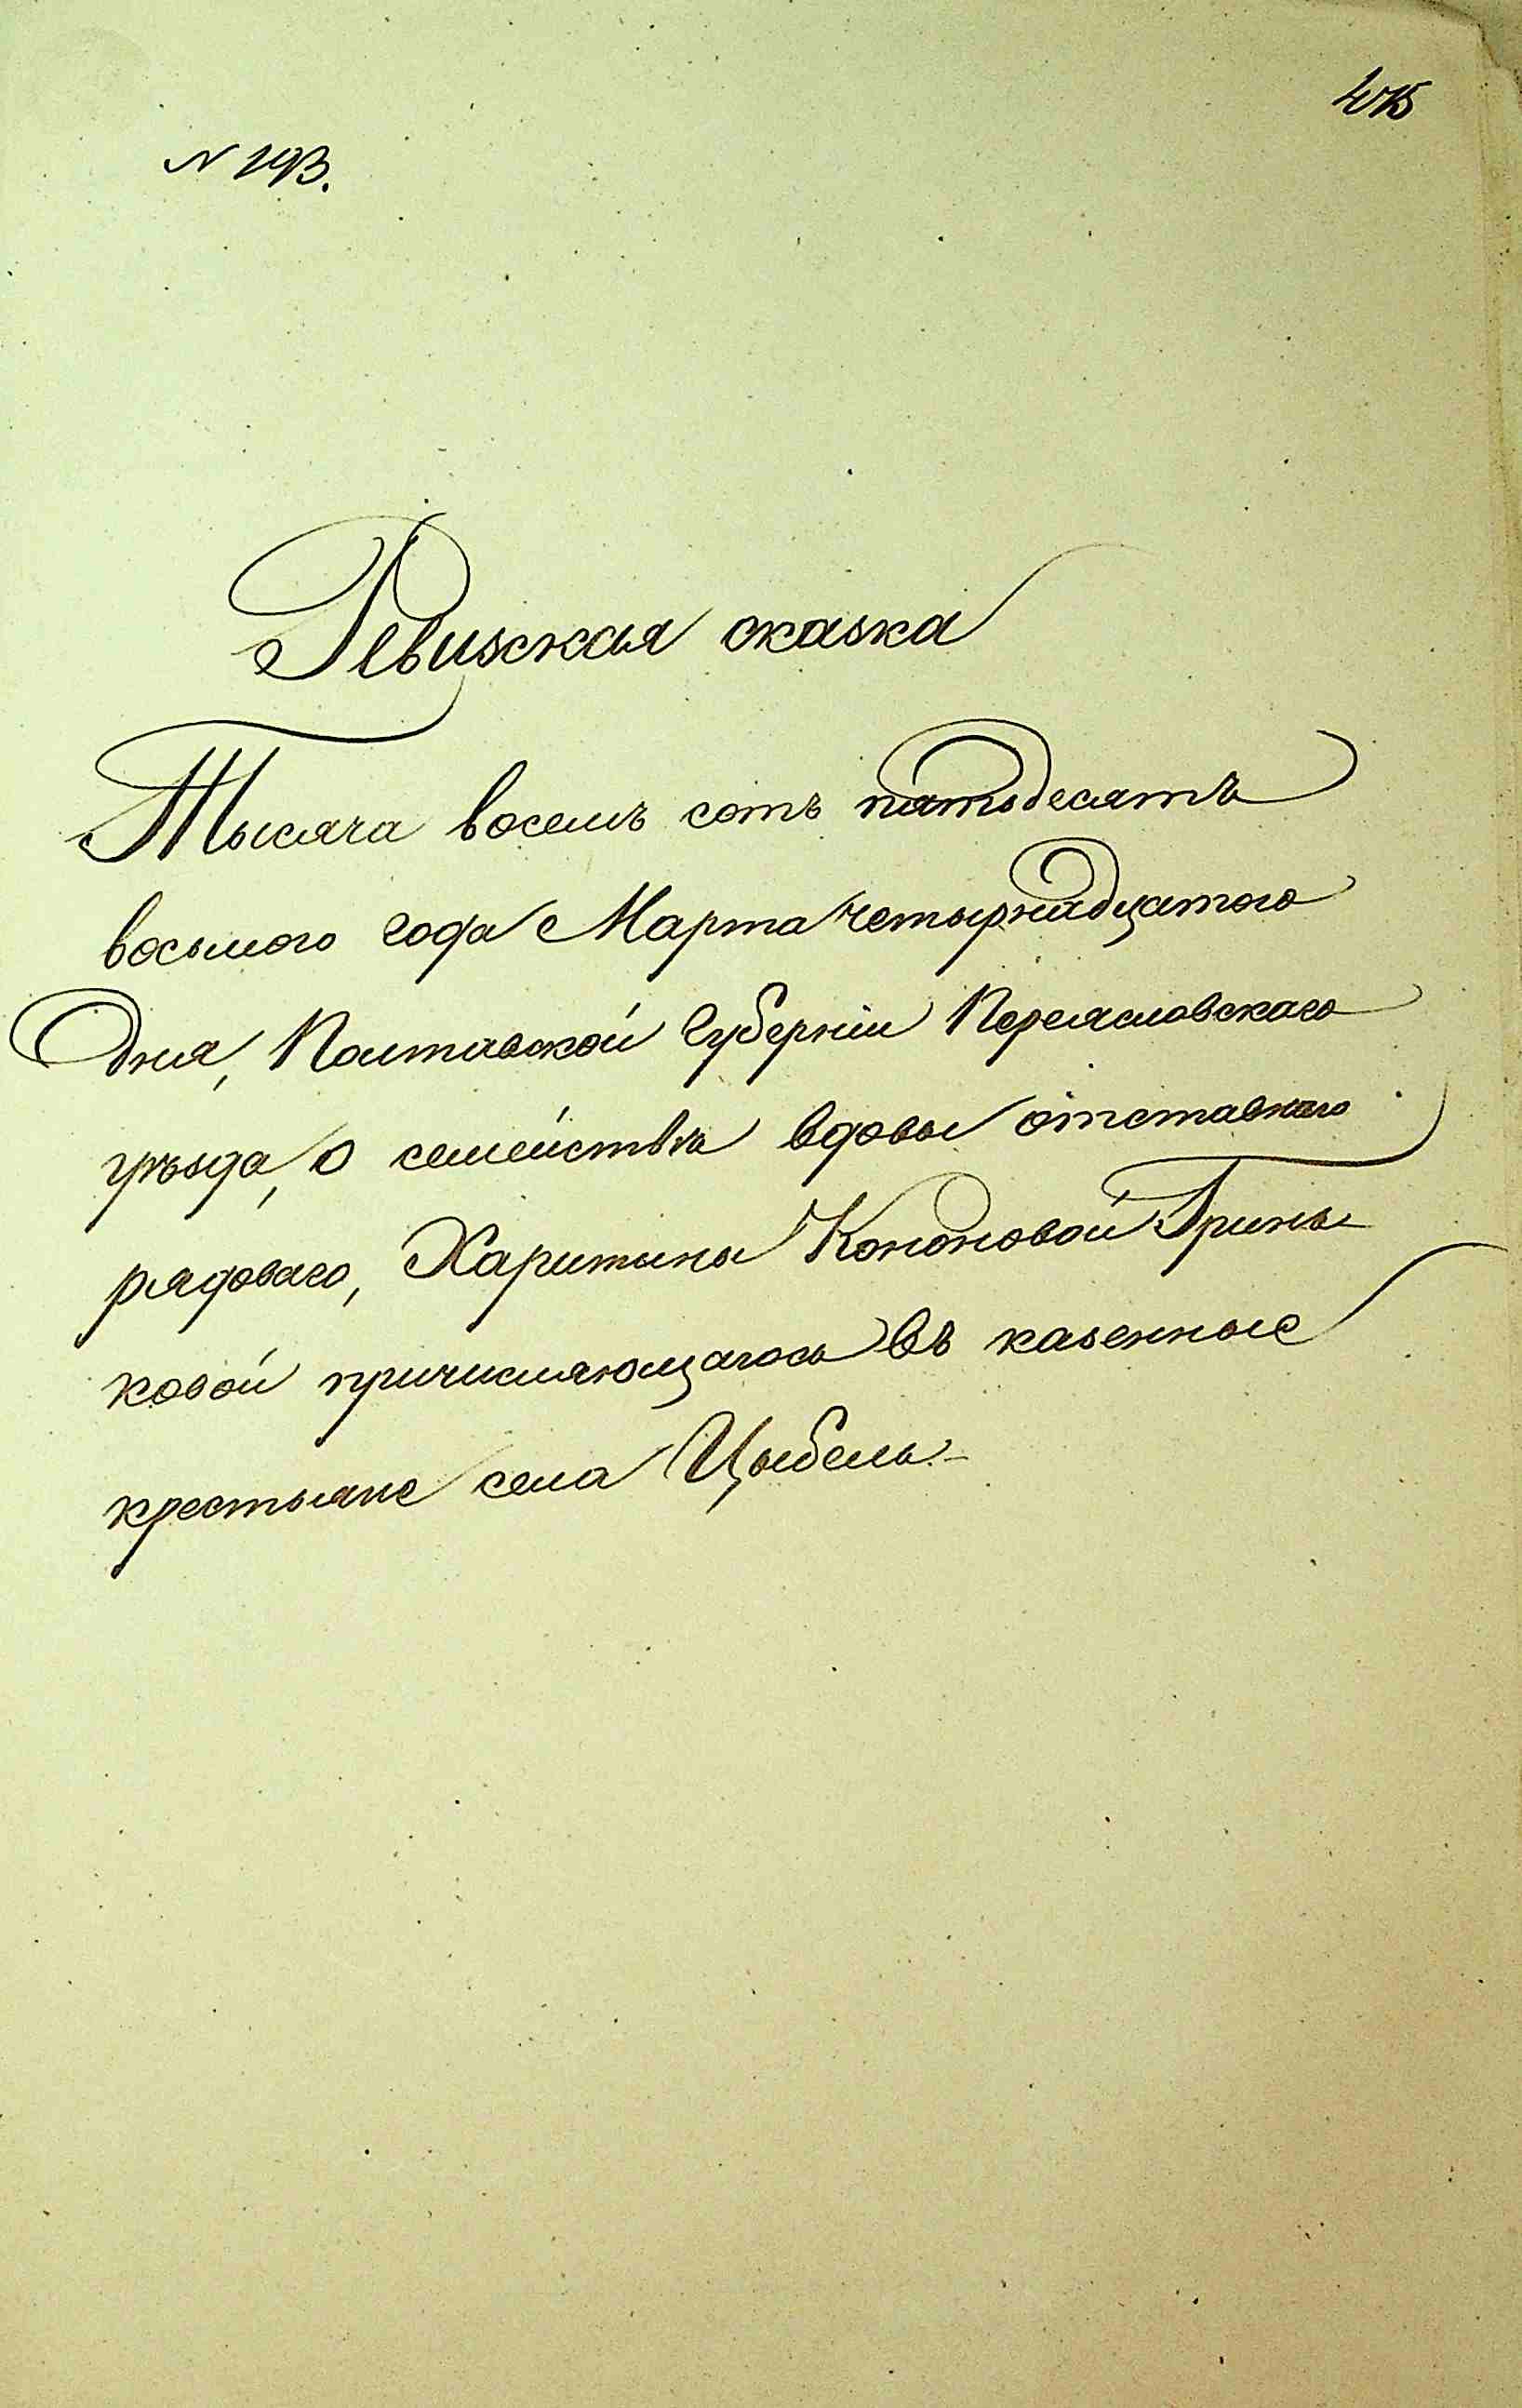 N 193.
Ревизская сказка
Тысяча восемъ сотъ пятьдесятъ
восьмого года Марта четырнадцатого
Дня, Полтавской Губерніи Переясловскаго
уѣзда, о семействѣ вдовы отставнаго
рядоваго, Харитины Кононовой Гринь-
ковой причисляющагося въ казенные
крестьяне села Цыбель-